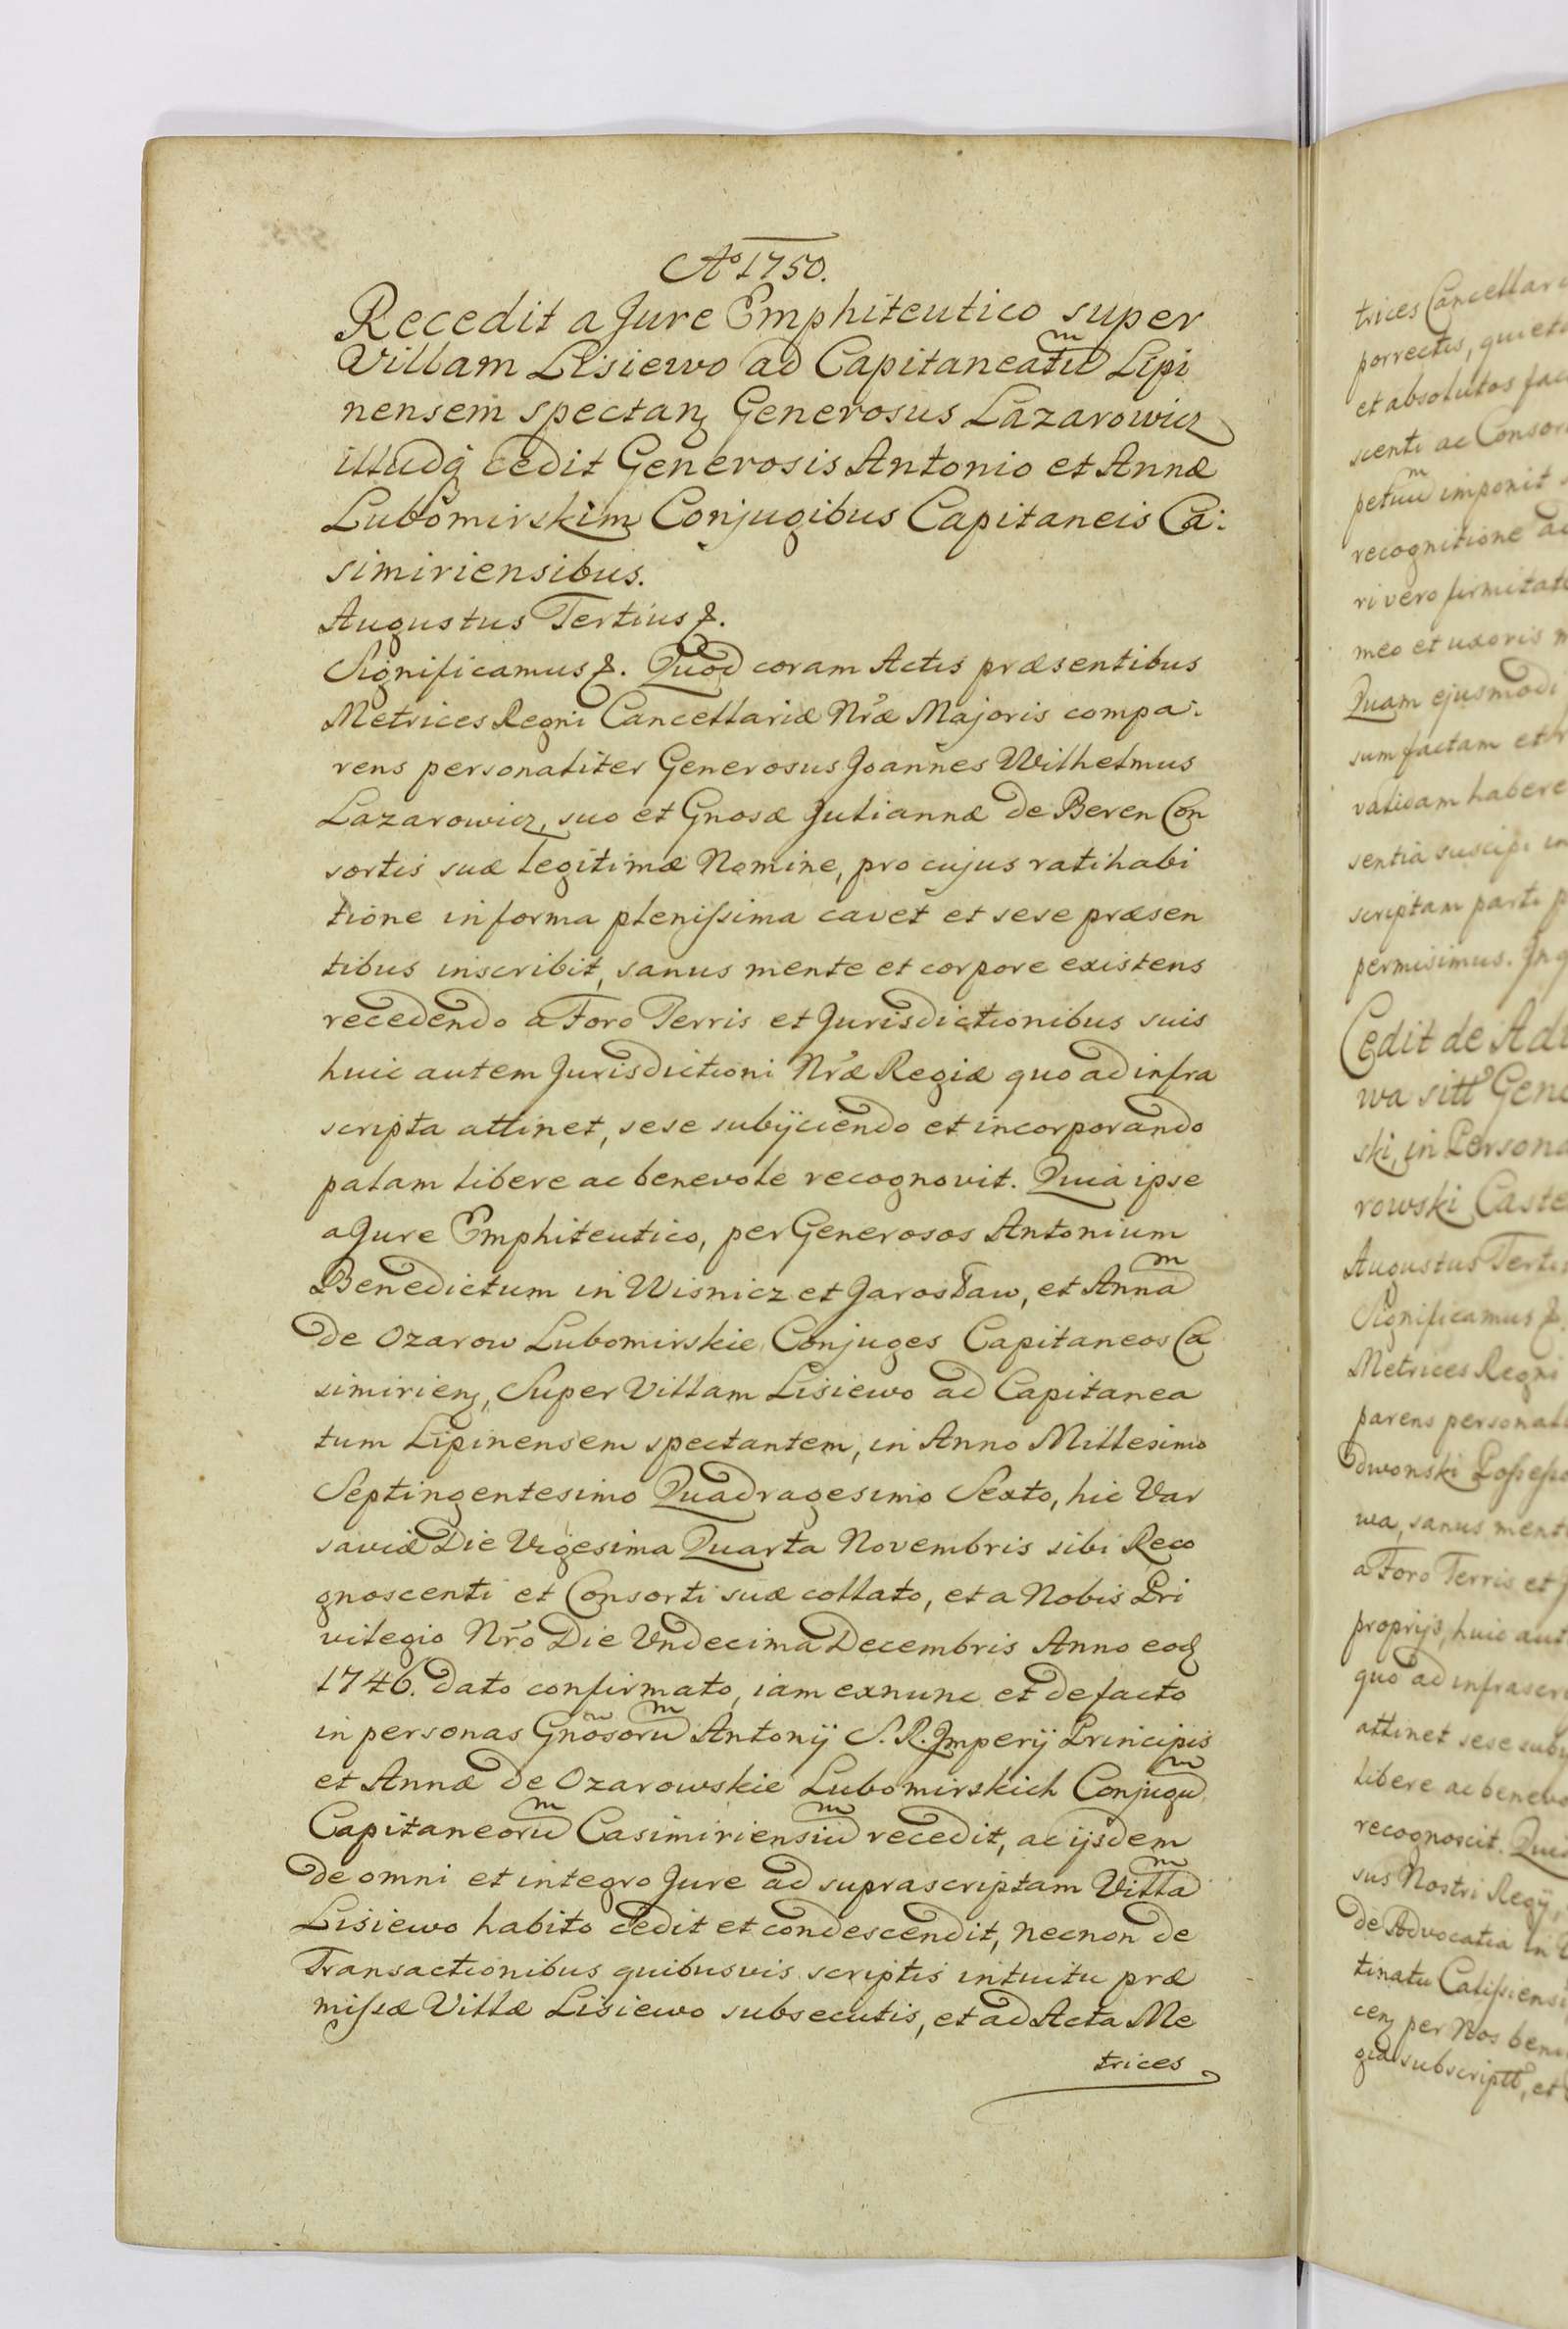 Aº 1750.
Recedit a Jure Emphiteutico super
Villam Lisiewo ad Capitaneatuͫ Lipi
nensem spectanꝫ Generosus Lazarowicz
illudq̢ cedit Generosis Antonio et Annæ
Lubomirskim Conjugibus Capitaneis Ca:
simiriensibus.
Augustus Tertius &.
Significamus &. Quod coram Actis præsentibus
Metrices Regni Cancellariæ Nræ Majoris compa:
rens personaliter Generosus Joannes Wilhelmus
Lazarowicz, suo et Gnosæ Juliannæ de Beren Con
sortis suæ legitimæ Nomine, pro cujus ratihabi
tione in forma pleniſsima cavet et sese præsen
tibus inscribit, sanus mente et corpore existens
recedendo a Foro Terris et Jurisdictionibus suis
huic autem Jurisdictioni Nræ Regiæ quo ad infra
scripta attinet, sese subijciendo et incorporando
palam libere ac benevole recognovit. Quia ipse
a Jure Emphiteutico, per Generosos Antonium
Benedictum in Wisnicz et Jarosław, et Annaͫ
de Ozarow Lubomirskie Conjuges Capitaneos Ca
simirienꝫ, Super Villam Lisiewo ad Capitanea
tum Lipinensem spectantem, in Anno Millesimo
Septingentesimo Quadragesimo Sexto, hic Var
saviæ Die Vigesima Quarta Novembris sibi Reco
gnoscenti et Consorti suæ collato, et a Nobis Pri
vilegio Nro Die Undecima Decembris Anno eoꝫ
1746. dato confirmato, iam exnunc et defacto
in personas Gnosoruͫ Antonij S. R. Imperij Principis
et Annæ de Ozarowskie Lubomirskich Conjuguͫ
Capitaneoruͫ Casimiriensiuͫ recedit, ac ijsdem
de omni et integro Jure ad suprascriptam Villaͫ
Lisiewo habito cedit et condescendit, necnon de
Transactionibus quibusvis scriptis intuitu præ
miſsæ Villæ Lisiewo subsecutis, et ad Acta Me
trices
trices Cancellari
porrectis, quiet
et absolutos fac
scenti ac Consor
petuuͫ imponit
recognitione ad
ri vero firmitat
meo et uxoris
Quam ejusmodi
sum factam et
validam habere
sentia suscipi in
scriptam parti
permisimus. In
Cedit de Ad
wa sitt Gene
ski, in Persona
rowski Caste
Augustus Terti
Significamus &.
Metrices Regni
parens personali
dwonski Poſseſso
wa, sanus ment
a Foro Terris et
proprijs, huic aut
quo ad infrascri
attinet sese subij
libere ac benevo
recognoscit. Qui
sus Nostri Regij,
de Advocatia in
tinatu Caliſsiensi
cenꝫ per Nos beni
gia subscriptt, et